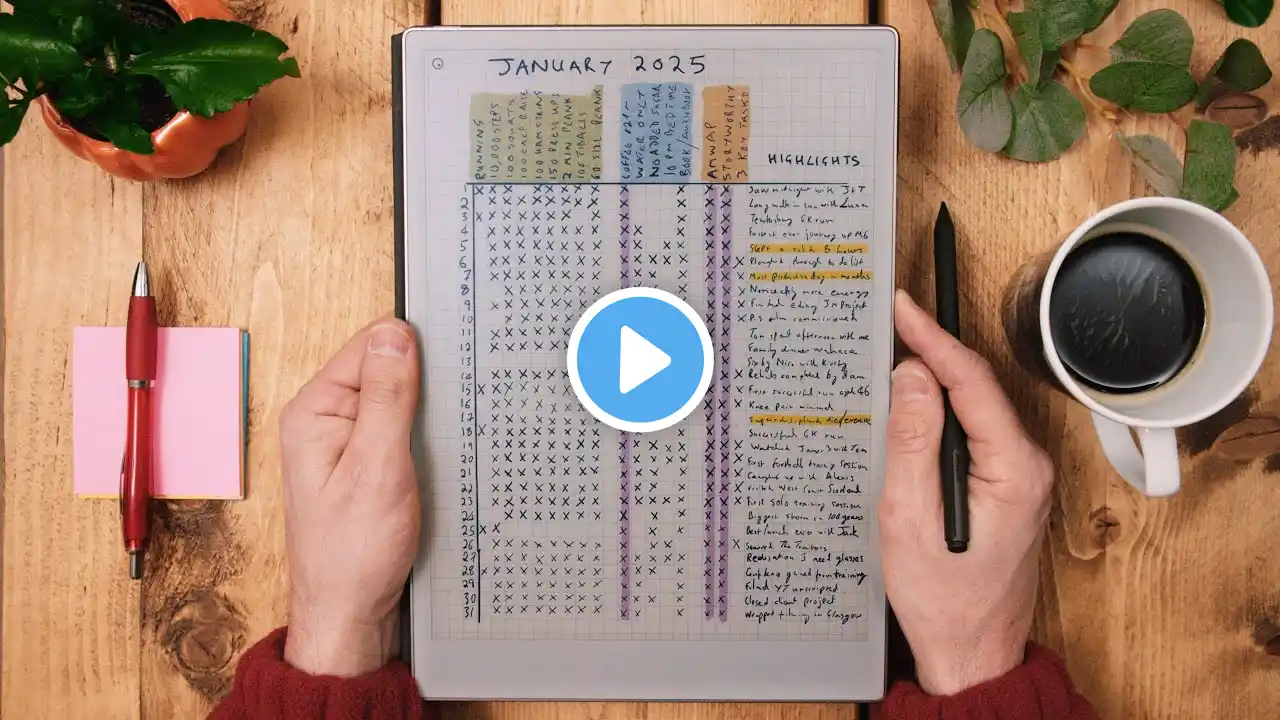 JANUARY 2025
RUNNING
10,000 STEPS
100 SQUATS
100 CALF RAISE
100 HAMSTRING
150 PRESS UPS
2 MIN PLANK
100 TIBIALIS
60 SIDE PLANK
COFFEE
WATER ONLY
NO ADDED SUGAR
10 PM BED TIME
BOOK/AUDIOBOOK
AMWAP
STORYWORTHY
3 KEY TASKS
HIGHLIGHTS
Saw midnight with J+T
2 Long walk in sun with Luna
3 Tewkesbury 6K run
4 Fastest ever journey up M6
5 Slept a solid 8 hours
6 Ploughed through to do list
7 Most productive day in months
8 Noticeably more energy
9 Finished editing JM Project
10 film commissioned
11 spent afternoon with me
12 Family dinner Wahaca
13 with Kirsty
14 Rehab completed by 8am
15 First successful run
16 Knee pain minimal
17
18 Successful 6K run
19 Watched with Tom
20 First football training session
21 Caught up with Alexis
22 Visited West Coast Scotland
23 First solo training session
24 Biggest storm in 100 years
25 Best lunch ever with Jack
26 The Traitors
27 Realisation I need glasses
28 from training
29 Filmed YT unscripted
30 Closed client project
31 Wrapped filming in Glasgow